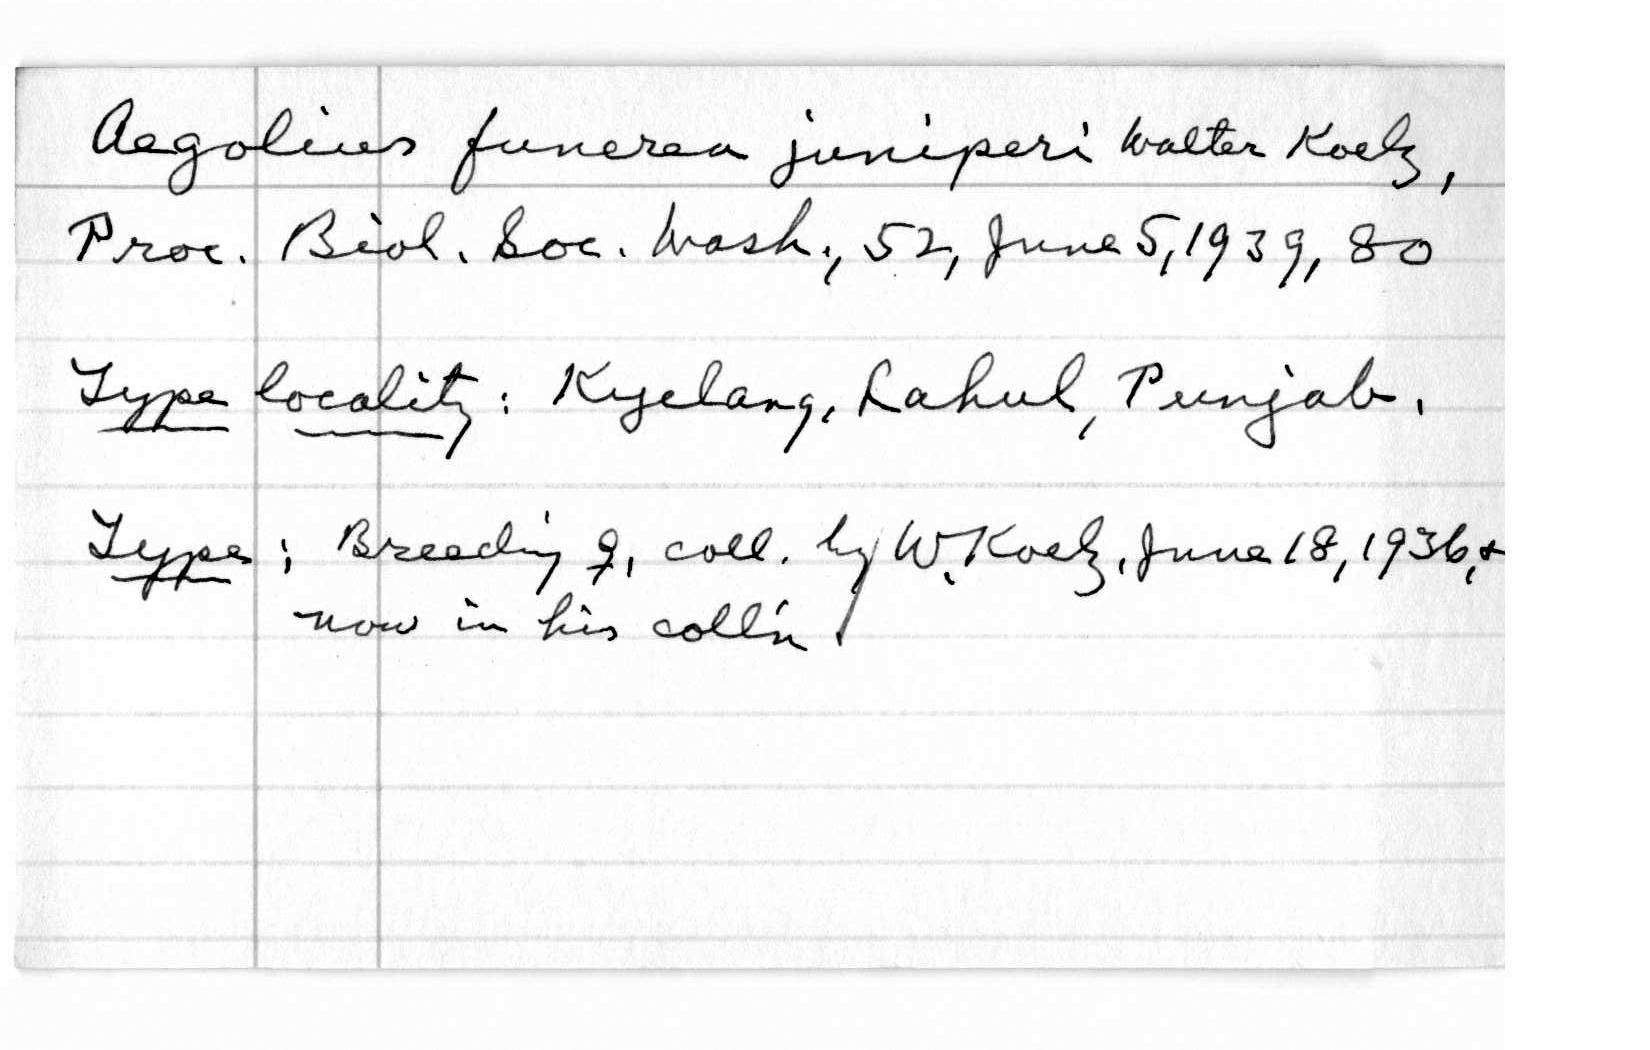 Aegolius funerea juniperi Walter Koelz,
Proc. Biol. Soc. Wash., 52, June 5, 1939, 80
Type locality: Kyelang, Lahul, Punjab.
Type: Breeding ♀, coll. by W. Koelz, June 18, 1936, &
now in his coll'n.